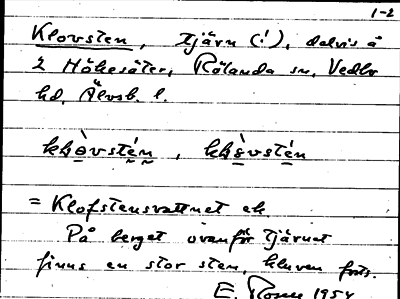 1-2
Klovsten, Tjärn (!), delvis å
2 Hökesäter, Rölanda sn, Vedbo
hd, Älvsb. l.
= Klofstensvattnet ek
På berget ovanför tjärnet
finns en stor sten, kluven
E. 1954